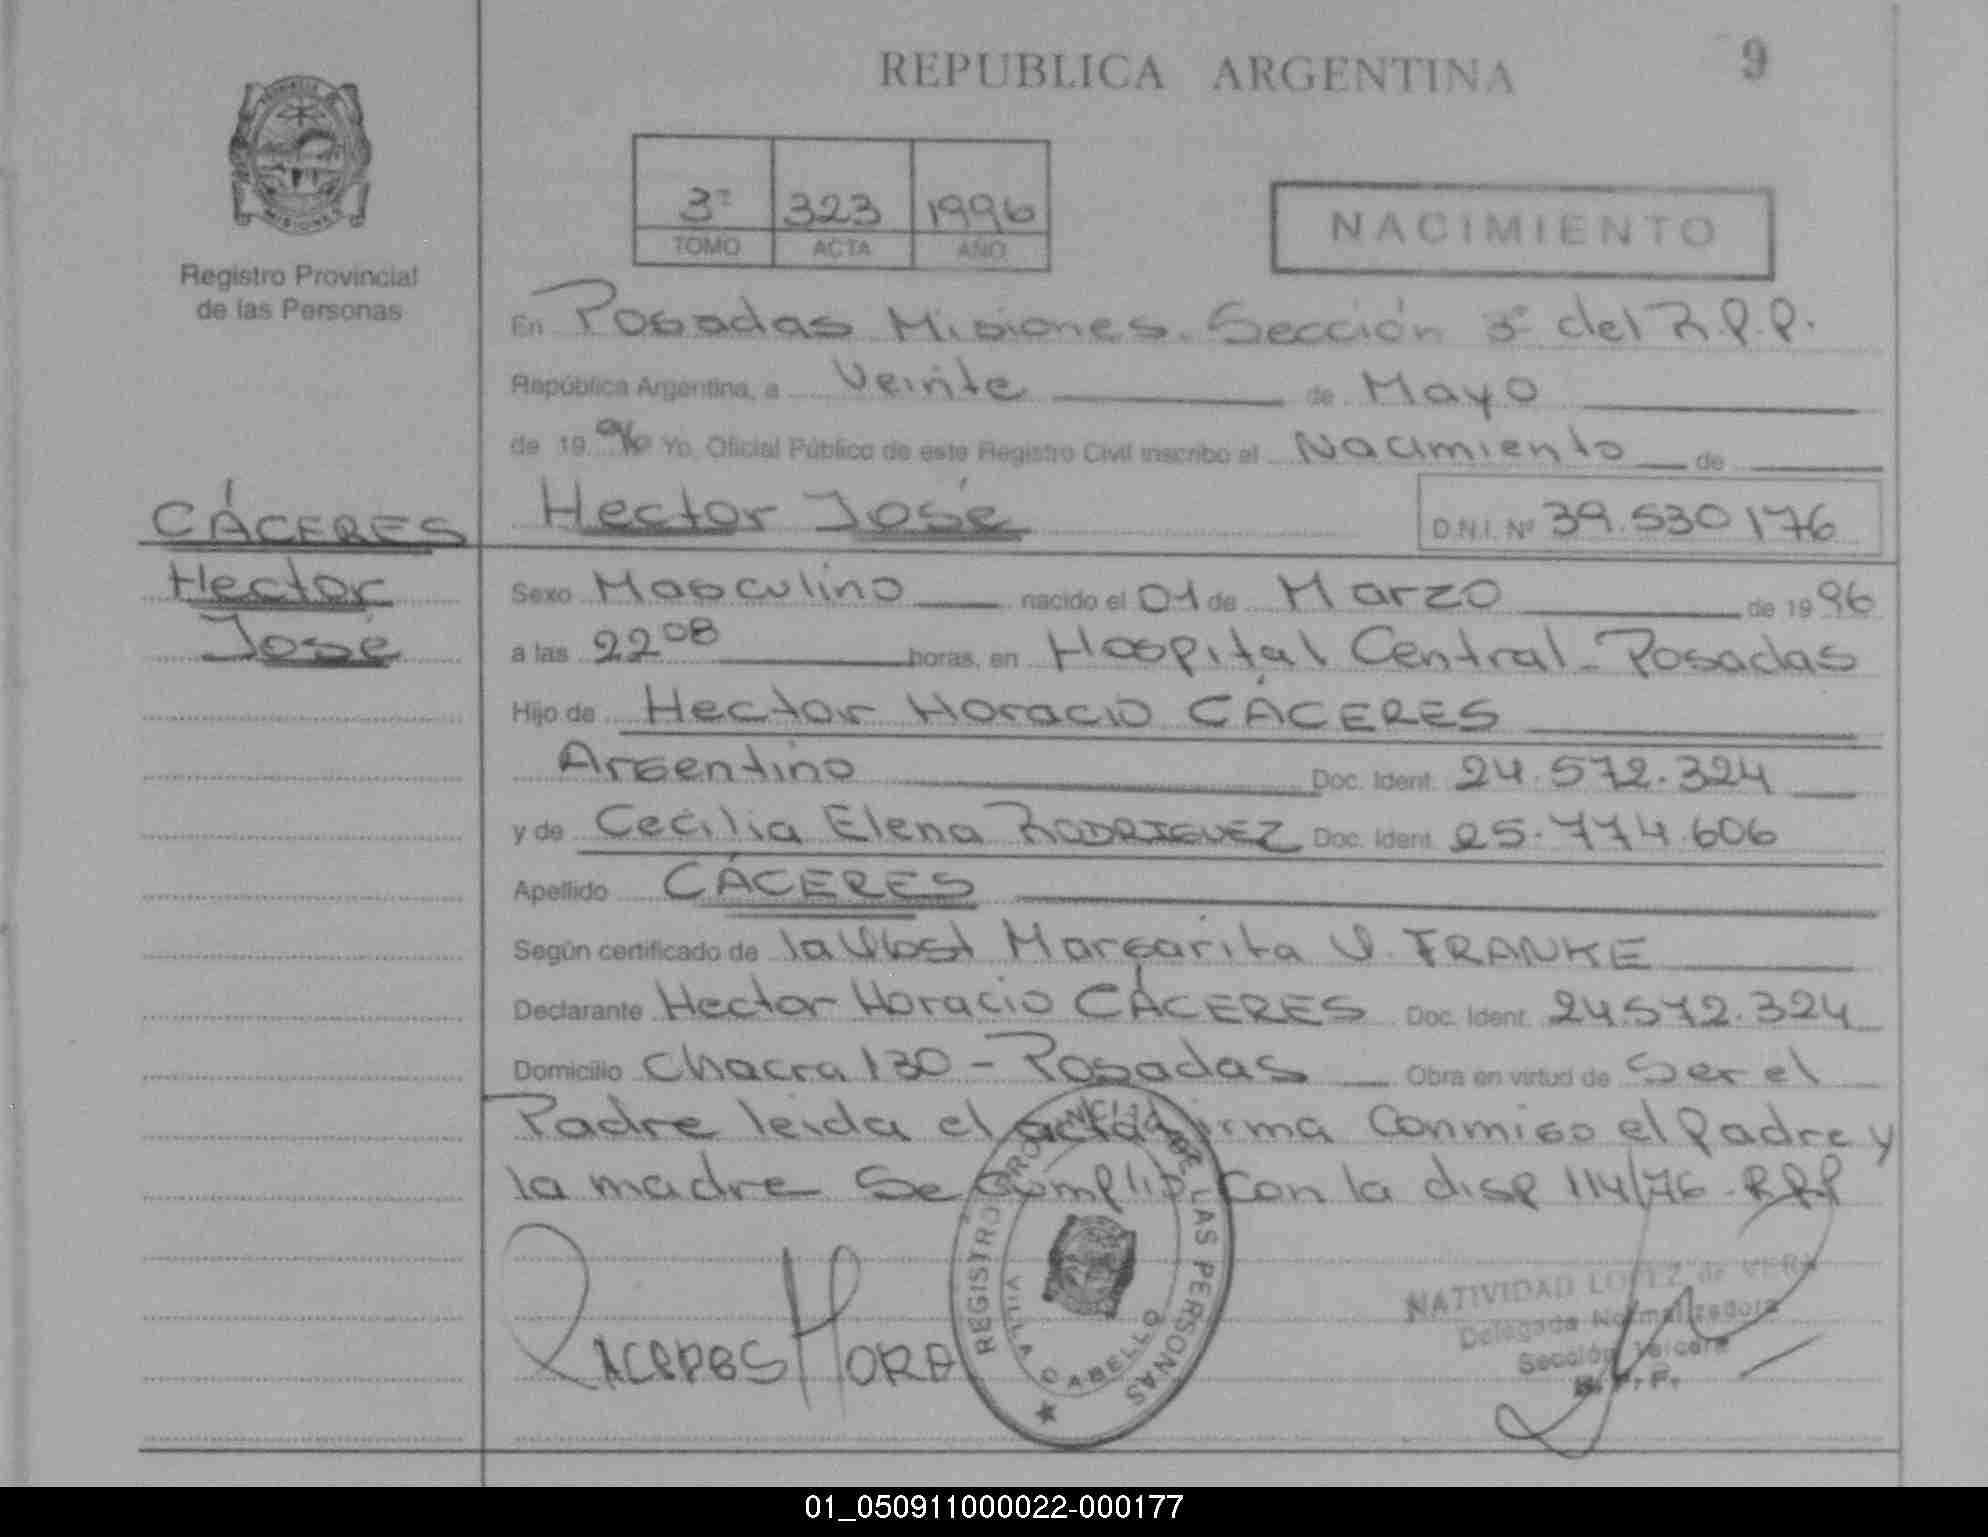 REPUBLICA ARGENTINA
9
MISIONES
Registro Provincial
de las Personas
3º 323 1996
TOMO ACTA AÑO
NACIMIENTO
En Posadas Misiones. Sección 3º del R.P.P.
República Argentina, a Veinte de Mayo
de 19 96 Yo, Oficial Público de este Registro Civil inscribo el Nacimiento de
CÁCERES
Hector José D.N.I. Nº 39.530176
Hector
José
Sexo Masculino nacido el 01 de Marzo de 19 96
a las 22 08 horas, en Hospital Central - Posadas
Hijo de Hector Horacio CÁCERES
Argentino Doc. Ident. 24.572.324
y de Cecilia Elena RODRIGUEZ Doc. Ident. 25.774.606
Apellido CÁCERES
Según certificado de la Obst Margarita V. FRANKE
Declarante Hector Horacio CÁCERES Doc. Ident. 24572.324
Domicilio Chacra 130 - Posadas Obra en virtud de Ser el
Padre leida el acta firma Conmigo el Padre y
la madre Se Cumplio Con la disp 114/76 - RPP
REGISTRO PROVINCIAL DE LAS PERSONAS
VILLA CABELLO
NATIVIDAD LOPEZ de VERA
Delegada Normalizadora
Sección Tercera
R. P. P.
01_050911000022-000177